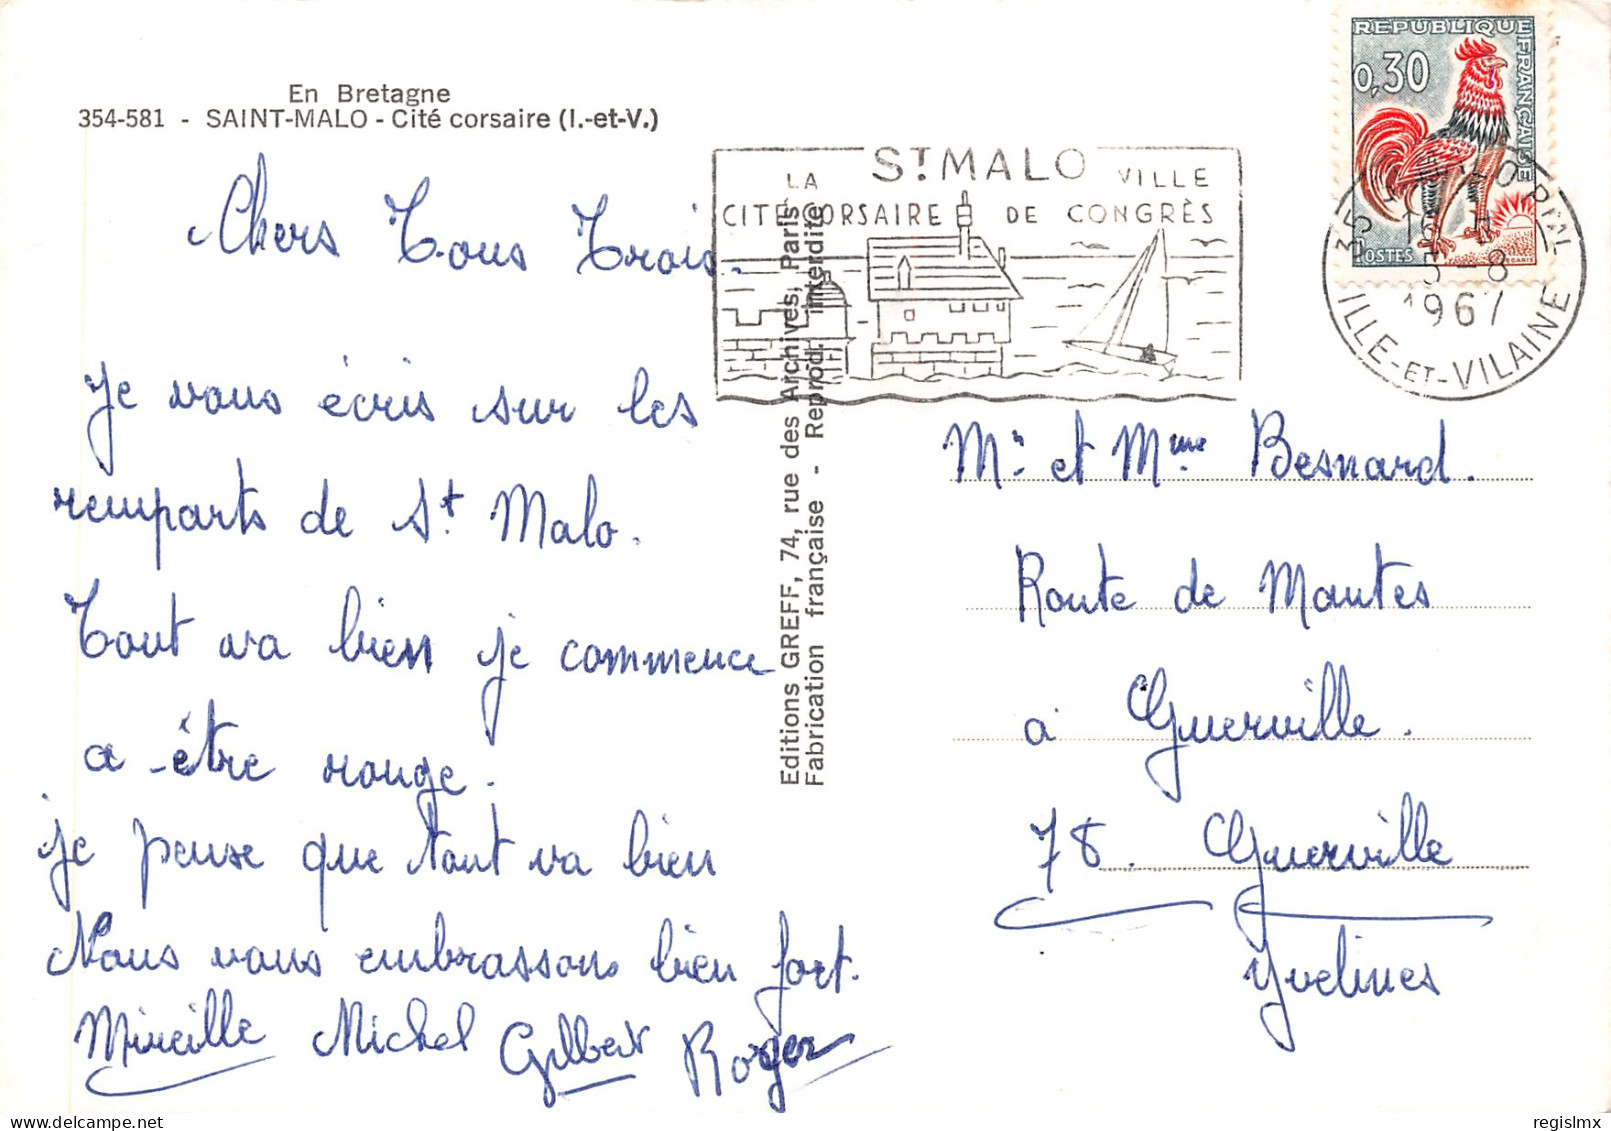 En Bretagne
354-581 - SAINT-MALO - Cité corsaire (I.-et-V.)
Chers Tous Trois.
Je vous écris sur les
remparts de St Malo.
Tout va bien je commence
a être rouge.
je pense que tout va bien
Nous vous embrassons bien fort.
Mireille Michel Gilbert Roger
Editions GREFF, 74, rue des Archives, Paris
Fabrication française - Reprod. interdite
ST MALO
LA VILLE
CITE CORSAIRE DE CONGRÈS
REPUBLIQUE FRANÇAISE
0,30
POSTES
35
5-8
1967
ILLE-ET-VILAINE
Mr et Mme Besnard.
Route de Mantes
à Guerville.
78. Guerville
Yvelines
regislmx